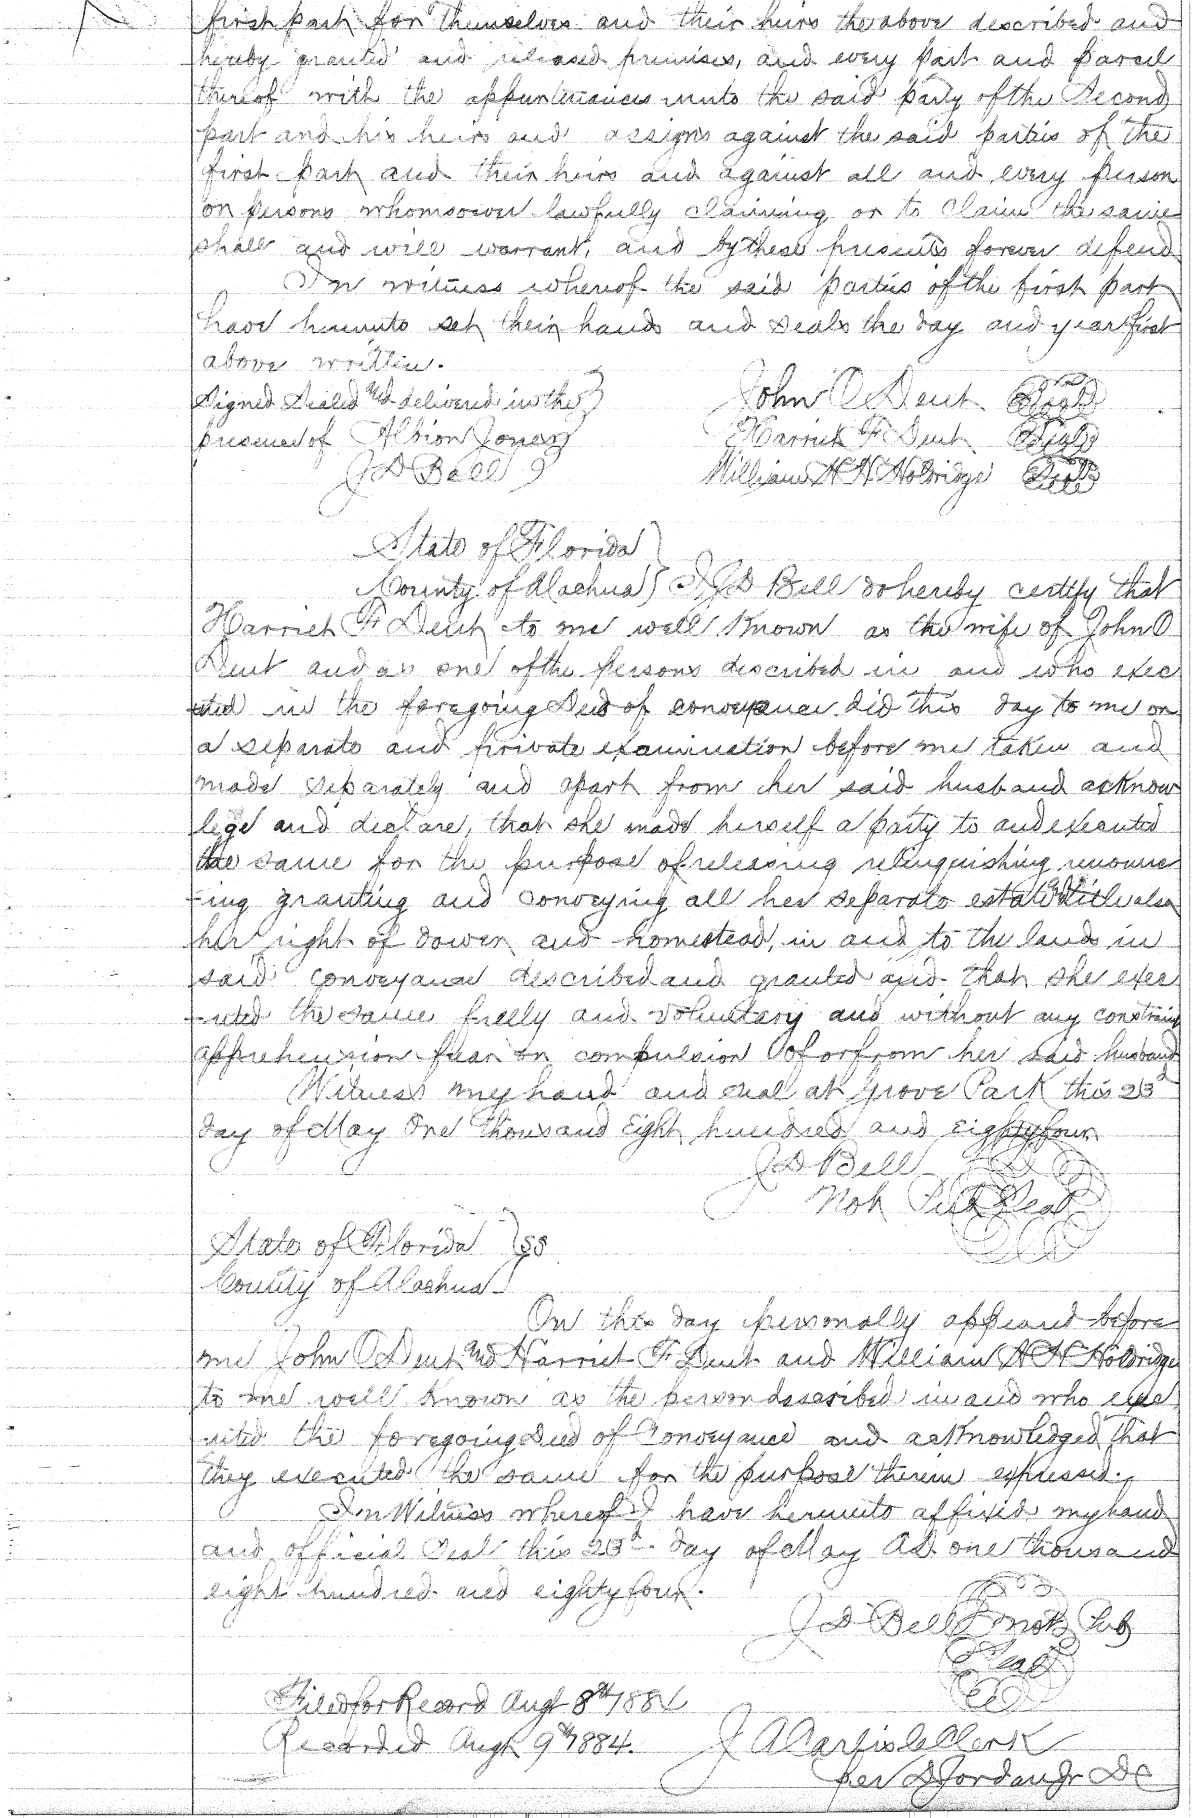 first part for themselves and their heirs the above described and
hereby granted and released premises, and every part and parcel
thereof with the appurtenances unto the said party of the Second
part and his heirs and assigns against the said parties of the
first part and their heirs and against all and every person
or persons whomsoever lawfully claiming or to claim the same
shall and will warrant, and by these presents forever defend
In witness whereof the said parties of the first part
have hereunto set their hands and seals the day and year first
above written.
Signed Sealed and delivered in the } John O Dent Seal
presence of Albion Jones } Harriet F Dent Seal
J D Bell } William H H Holdridge Seal
State of Florida }
County of Alachua } I J D Bell do hereby certify that
Harriet F Dent to me well Known as the wife of John O
Dent and as one of the persons described in and who exec
uted in the foregoing Deed of conveyance did this day to me on
a separate and private examination before me taken and
made separately and apart from her said husband acknow
lege and declare, that she made herself a party to and executed
the same for the purpose of releasing relinquishing renounc
-ing granting and conveying all her separate estate and title also
her right of dower and homestead, in and to the lands in
said conveyance described and granted and that she exec
-uted the same freely and voluntary and without any constraint
apprehension fear or compulsion of or from her said husband
Witness my hand and seal at Grove Park this 23d
day of May One Thousand Eight hundred and Eighty four
J D Bell
Not Pub Seal
State of Florida } SS
County of Alachua }
On this day personally appeared before
me John O Dent and Harriet F Dent and William H H Holdridge
to me well Known as the person described in and who exe
cuted the foregoing Deed of Conveyance and acknowledged that
they executed the same for the purpose therein expressed.
In Witness whereof I have hereunto affixed my hand
and official Seal this 23d day of May AD one thousand
eight hundred and eighty four.
J D Bell Not Pub
Seal
Filed for Record Augt 8th 1884
Recorded Augt 9th 1884. J A Carlisle Clerk
per D Jordan Jr DC